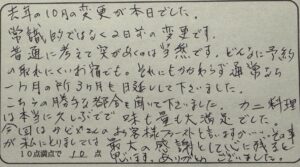 去年の10月の変更が本日でした。
常識的ではなく2日前の変更です。
普通に考えて突があくのは当然です。どんなに予約
の取れにくいわ宿でも。それにもかかわらず通常なら
1ヶ月の所3カ月も延長して下さいました。
こちらの勝手な都合を聞いて下さいました。カニ料理
は本当に久しぶりでで味も量も大満足でした。
今回はかどやさんのお客様ファーストといいますか…その事
が私にとりましては最大の感謝として心に残ると
思います。ありがとうございました。
10点満点で 10 点